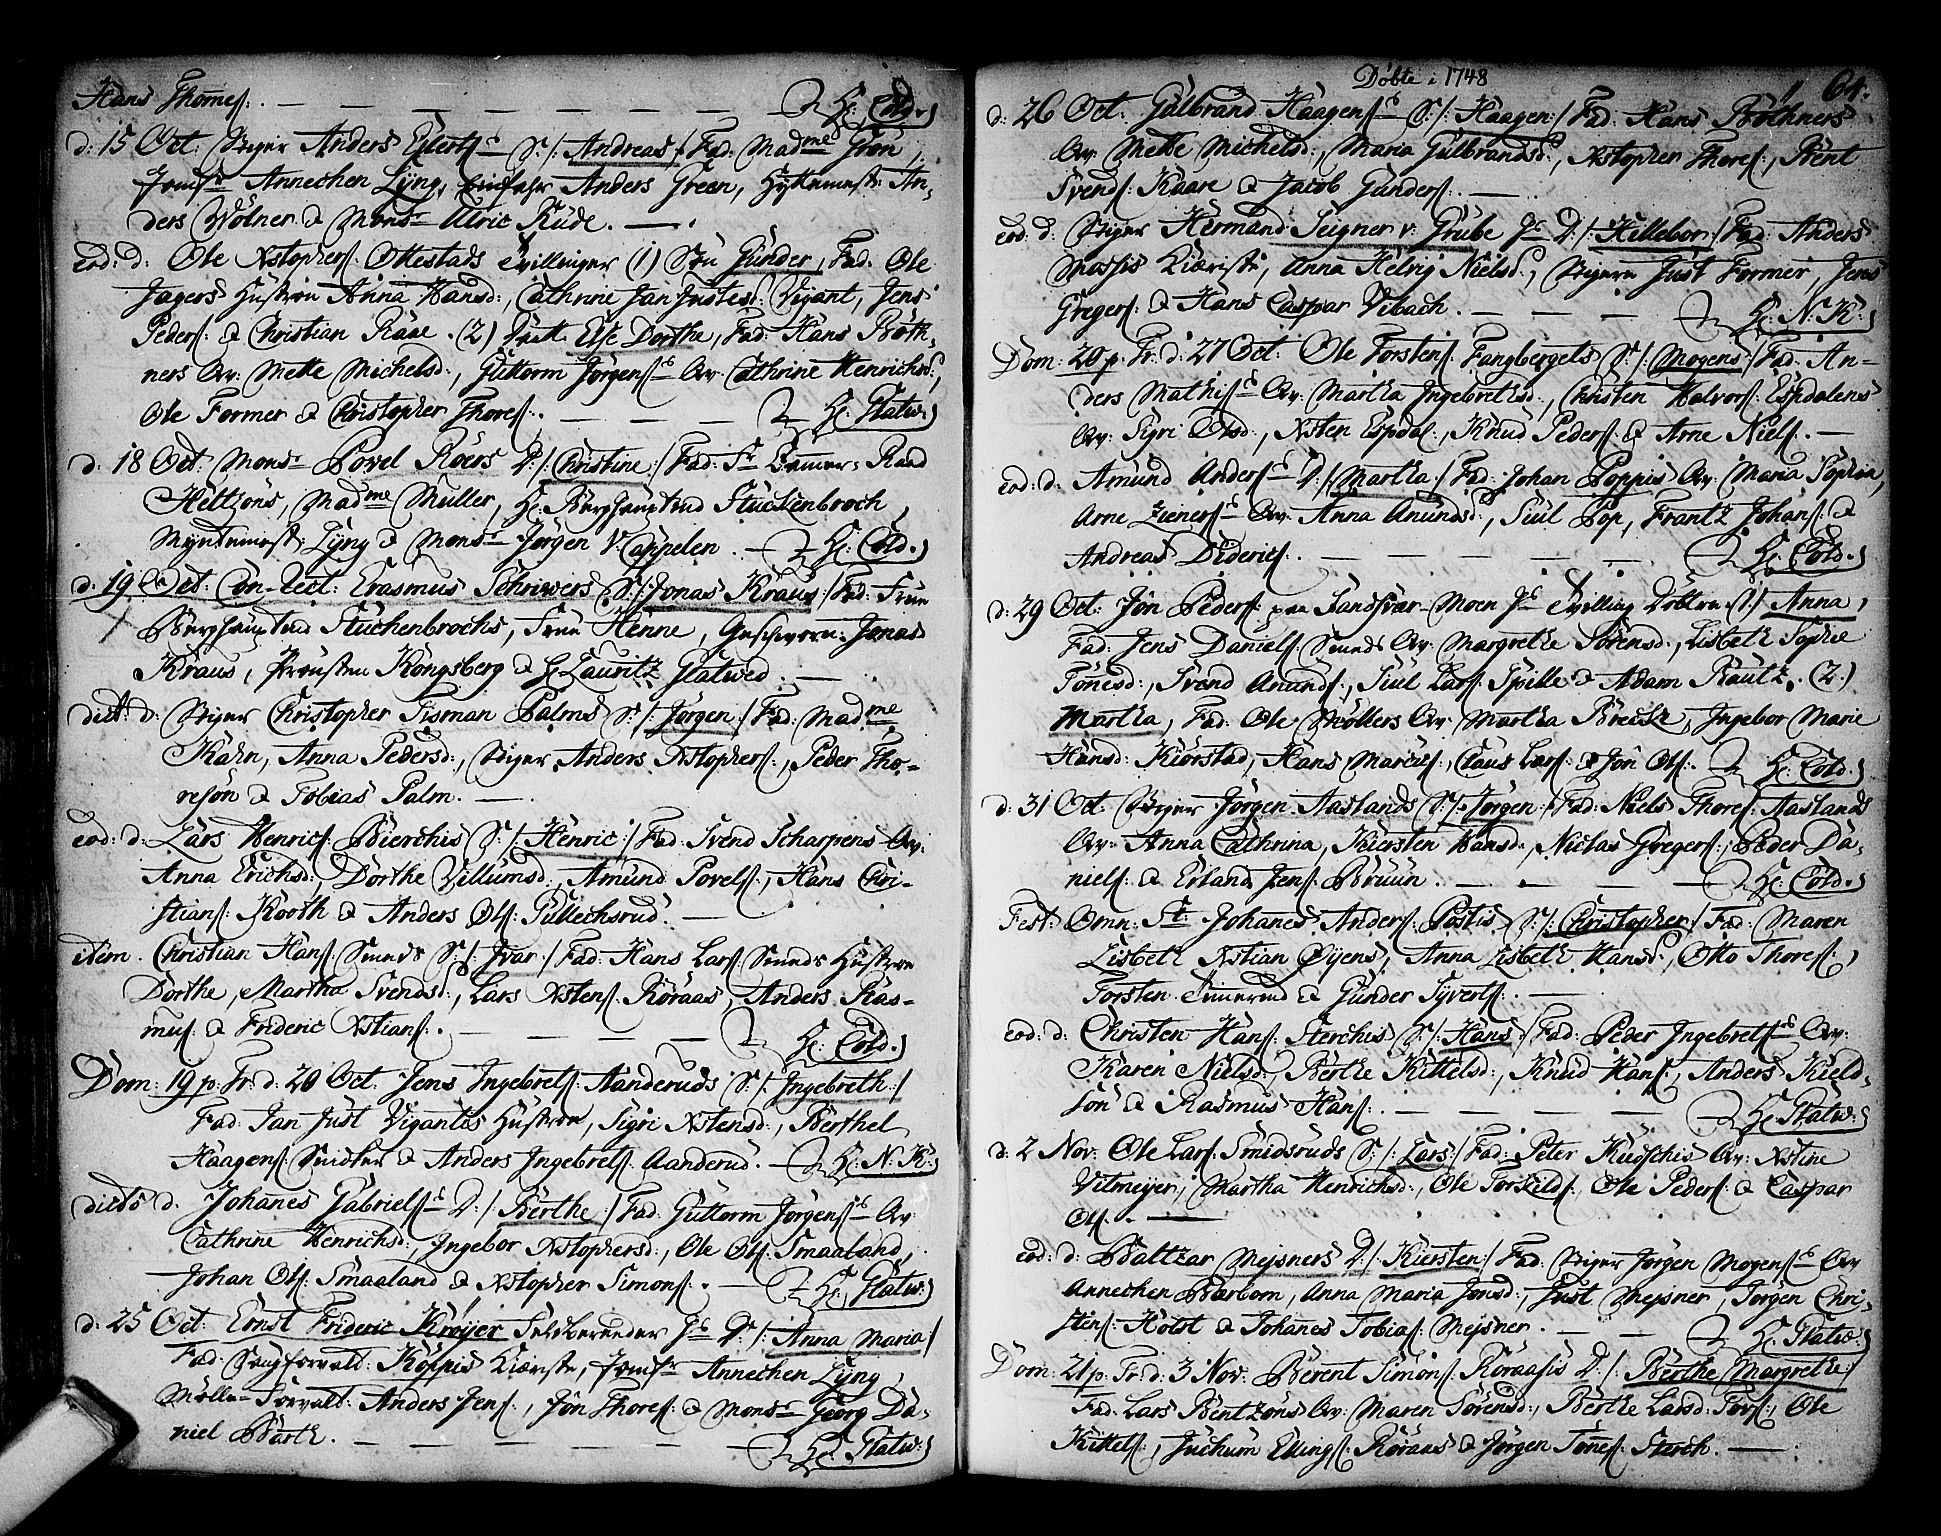 Hans Thomes: . — — — — — H: Cold.)
d: 15 Oct: Stiger Anders Eilerts S: /: Andreas :/ Fad: Madme Grøn,
Jomfr Annechen Lyng, Anders Green, Hyttemest: An-
ders Wølner & Monsr Ulric Rude. —
eod: d: Ole Xstophers: Ottestads Tvillinger (1) Søn Gunder, Fad: Ole
Jagers Hustroe Anna Hansd:, Cathrine Jan Justesd: Vigant, Jens
Peders: & Christian Raae. (2) Else Dorthe, Fad: Hans Böth-
ners Qv: Mette Michelsd:, Guttorm Jørgens Qv: Cathrine Henrichsd:,
Ole Former & Christopher Thores:, — — — H: Statw:)
d: 18 Oct: Monsr Povel Röers D: /: Christine :/ Fad: Sr Cammer-Raad
Heltzöns, Madme Müller, H: Berghauptmd Stuckenbroch,
Myntemest: Lyng & Monsr Jørgen v: Cappelen. — H: Cold.)
d: 19 Oct: Con-Rect: Erasmus Schriwers S: /: Jonas Kraus :/ Fad: Frue
Berghauptmd Stuckenbrochs, Frue Henne, Geschworn: Jonas
Kraus, Prousten Kongsberg & H: Lauritz Statwed. —
dict: d: Stiger Christopher Tisman Palms S: /: Jørgen :/ Fad: Madme
Kahn, Anna Pedersd:, Stiger Anders Xstophers:, Peder Tho-
resön & Tobias Palm. —
eod: d: Lars Henrics: Bierchis S: /: Henric :/ Fad: Svend Scharpens Qv:
Anna Erichsd:, Dorthe Villumsd:, Amund Povels:, Hans Chri-
stians: Kooth & Anders Ols: Tullechsrud. —
item. Christian Hans: Smeds S: /: Ivar :/ Fad: Hans Lars: Smeds Hustroe
Dorthe, Martha Svendsd:, Lars Xstens: Röraas, Anders Ras-
mus: & Frideric Xstians: . — — — — H: Cold.)
Dom: 19 p: Tr: d: 20 Oct: Jens Ingebrets: Aanderuds S: /: Ingebreth :/
Fad: Jan Just Vigantis Hustroe, Sigri Xstensd:, Berthel
Haagens: Snidker & Anders Ingebrets: Aanderud. — H: N: K:)
dicto d. Johanes Gabriels D: /: Berthe :/ Fad: Guttorm Jørgens Qv:
Cathrine Henrichsd:, Ingebor Xstophersd:, Ole Ols: Smaaland,
Johan Ols: Smaaland & Xstopher Simons: . — H: Statw:)
d: 25 Oct: Ernst Frideric Krøyer Feldbereder D: /: Anna Maria /
Fad: Köppis Kiæriste, Jomfr Annechen Lyng,
Mølle-Forvald: Anders Jens:, Jön Thores: & Monsr Georg Da-
niel Barth. — — — — — — H: Statw:)
Döbte i 1748
64.
d: 26 Oct: Gulbrand Haagens S: /: Haagen :/ Fad: Hans Böthners
Qv: Mette Michelsd:, Maria Gulbrandsd:, Xstopher Thores:, Bent
Svends: Kaare & Jacob Gunders: . —
eod: d: Stiger Hermand Seigner v: Grube D: /: Hellebor :/ Fad: Anders
Massis Kiæriste, Anna Helvig Nielsd:, Stigern Just Former, Jens
Gregers: & Hans Caspar Vibach. — — — H: N: K:)
Dom: 20 p: Tr: d: 27 Oct: Ole Torstens: Fangbergets S: /: Mogens :/ Fad: An-
ders Mathis Qv: Martha Ingebrethsd:, Christen Halvors: Espdalens
Qv: Sigri Olsd:, Xsten Espdal:, Knud Peders: & Arne Niels: . —
eod: d: Amund Anders D: /: Martha :/ Fad: Johan Poppis Qv: Maria Sophia,
Arne Zieners Qv: Anna Anundsd:, Siul Pop, Frantz Johans: &
Andreas Diderics: . — — — — — H: Cold.)
d: 29 Oct: Jön Peders: paa Sandsvær-Moen Tvilling Döttre 1) Anna,
Fad: Jens Daniels: Smeds Qv: Margrethe Sörensd:, Lisbeth Sophie
Tönesd:, Svend Anunds:, Siul Lars: Spille & Adam Rautz. (2)
Martha, Fad: Ole Möllers Qv: Martha Breche, Ingebor Marie
Hansd: Kiörstad, Hans Marcus:, Claus Lars: & Jön Ols: . — H: Cold.)
d: 31 Oct: Stiger Jörgen Aaslands S: /: Jørgen :/ Fad: Niels Thores: Aaslands
Qv: Anna Cathrina, Kiersten Hansd:, Niclas Gregers:, Peder Da-
niels: & Erland Jens: Bruun. — — — — H: Cold.)
Fest: Omn: St: Johanes Anders: Postis S: /: Christopher :/ Fad: Maren
Lisbeth Xstian Öyens, Anna Lisbeth Hansd:, Otto Thores:,
Torsten & Gunder Syverts: . —
eod: d: Christen Hans: Sterchis S: /: Hans :/ Fad: Peder Ingebrets Qv:
Karen Nielsd:, Berthe Kittelsd:, Knud Hans:, Anders Kield-
sön & Rasmus Hans: . — — — — H: Statw:)
d: 2 Nov: Ole Lars: Smidsruds S: /: Lars :/ Fad: Peter Kudschis Qv: Xstine
Vitmeyer, Martha Henrichsd:, Ole Torkilds:, Ole Peders: & Caspar
Ols: . —
eod: d: Baltzar Mejsners D: /: Kiersten :/ Fad: Stiger Jørgen Mogens Qv:
Annechen Barborn, Anna Maria Jonsd:, Just Mejsner, Jørgen Chri-
stens: Holst & Johanes Tobias: Mejsner. — — H: Statw:)
Dom: 21 p: Tr: d: 3 Nov: Berent Simons: Röraasis D: /: Berthe Margrethe :/
Fad: Lars Bentzöns Qv: Maren Sörensd:, Berthe Larsd: Tors:, Ole
Kittels:, Juchum Ellings: Röraas & Jørgen Tönnes: Sterch. —